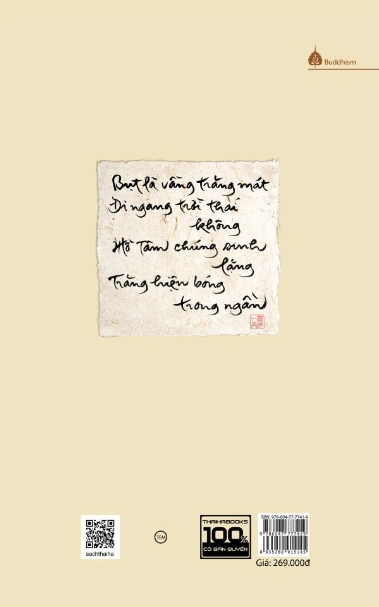 Buddhism
Bụt là vầng trăng mát
Đi ngang trời thái
không
Hồ Tâm chúng sinh
lặng
Trăng hiện bóng
trong ngần
sachthaiha
TEM
THAIHABOOKS
100%
CÓ BẢN QUYỀN
Giá: 269.000đ